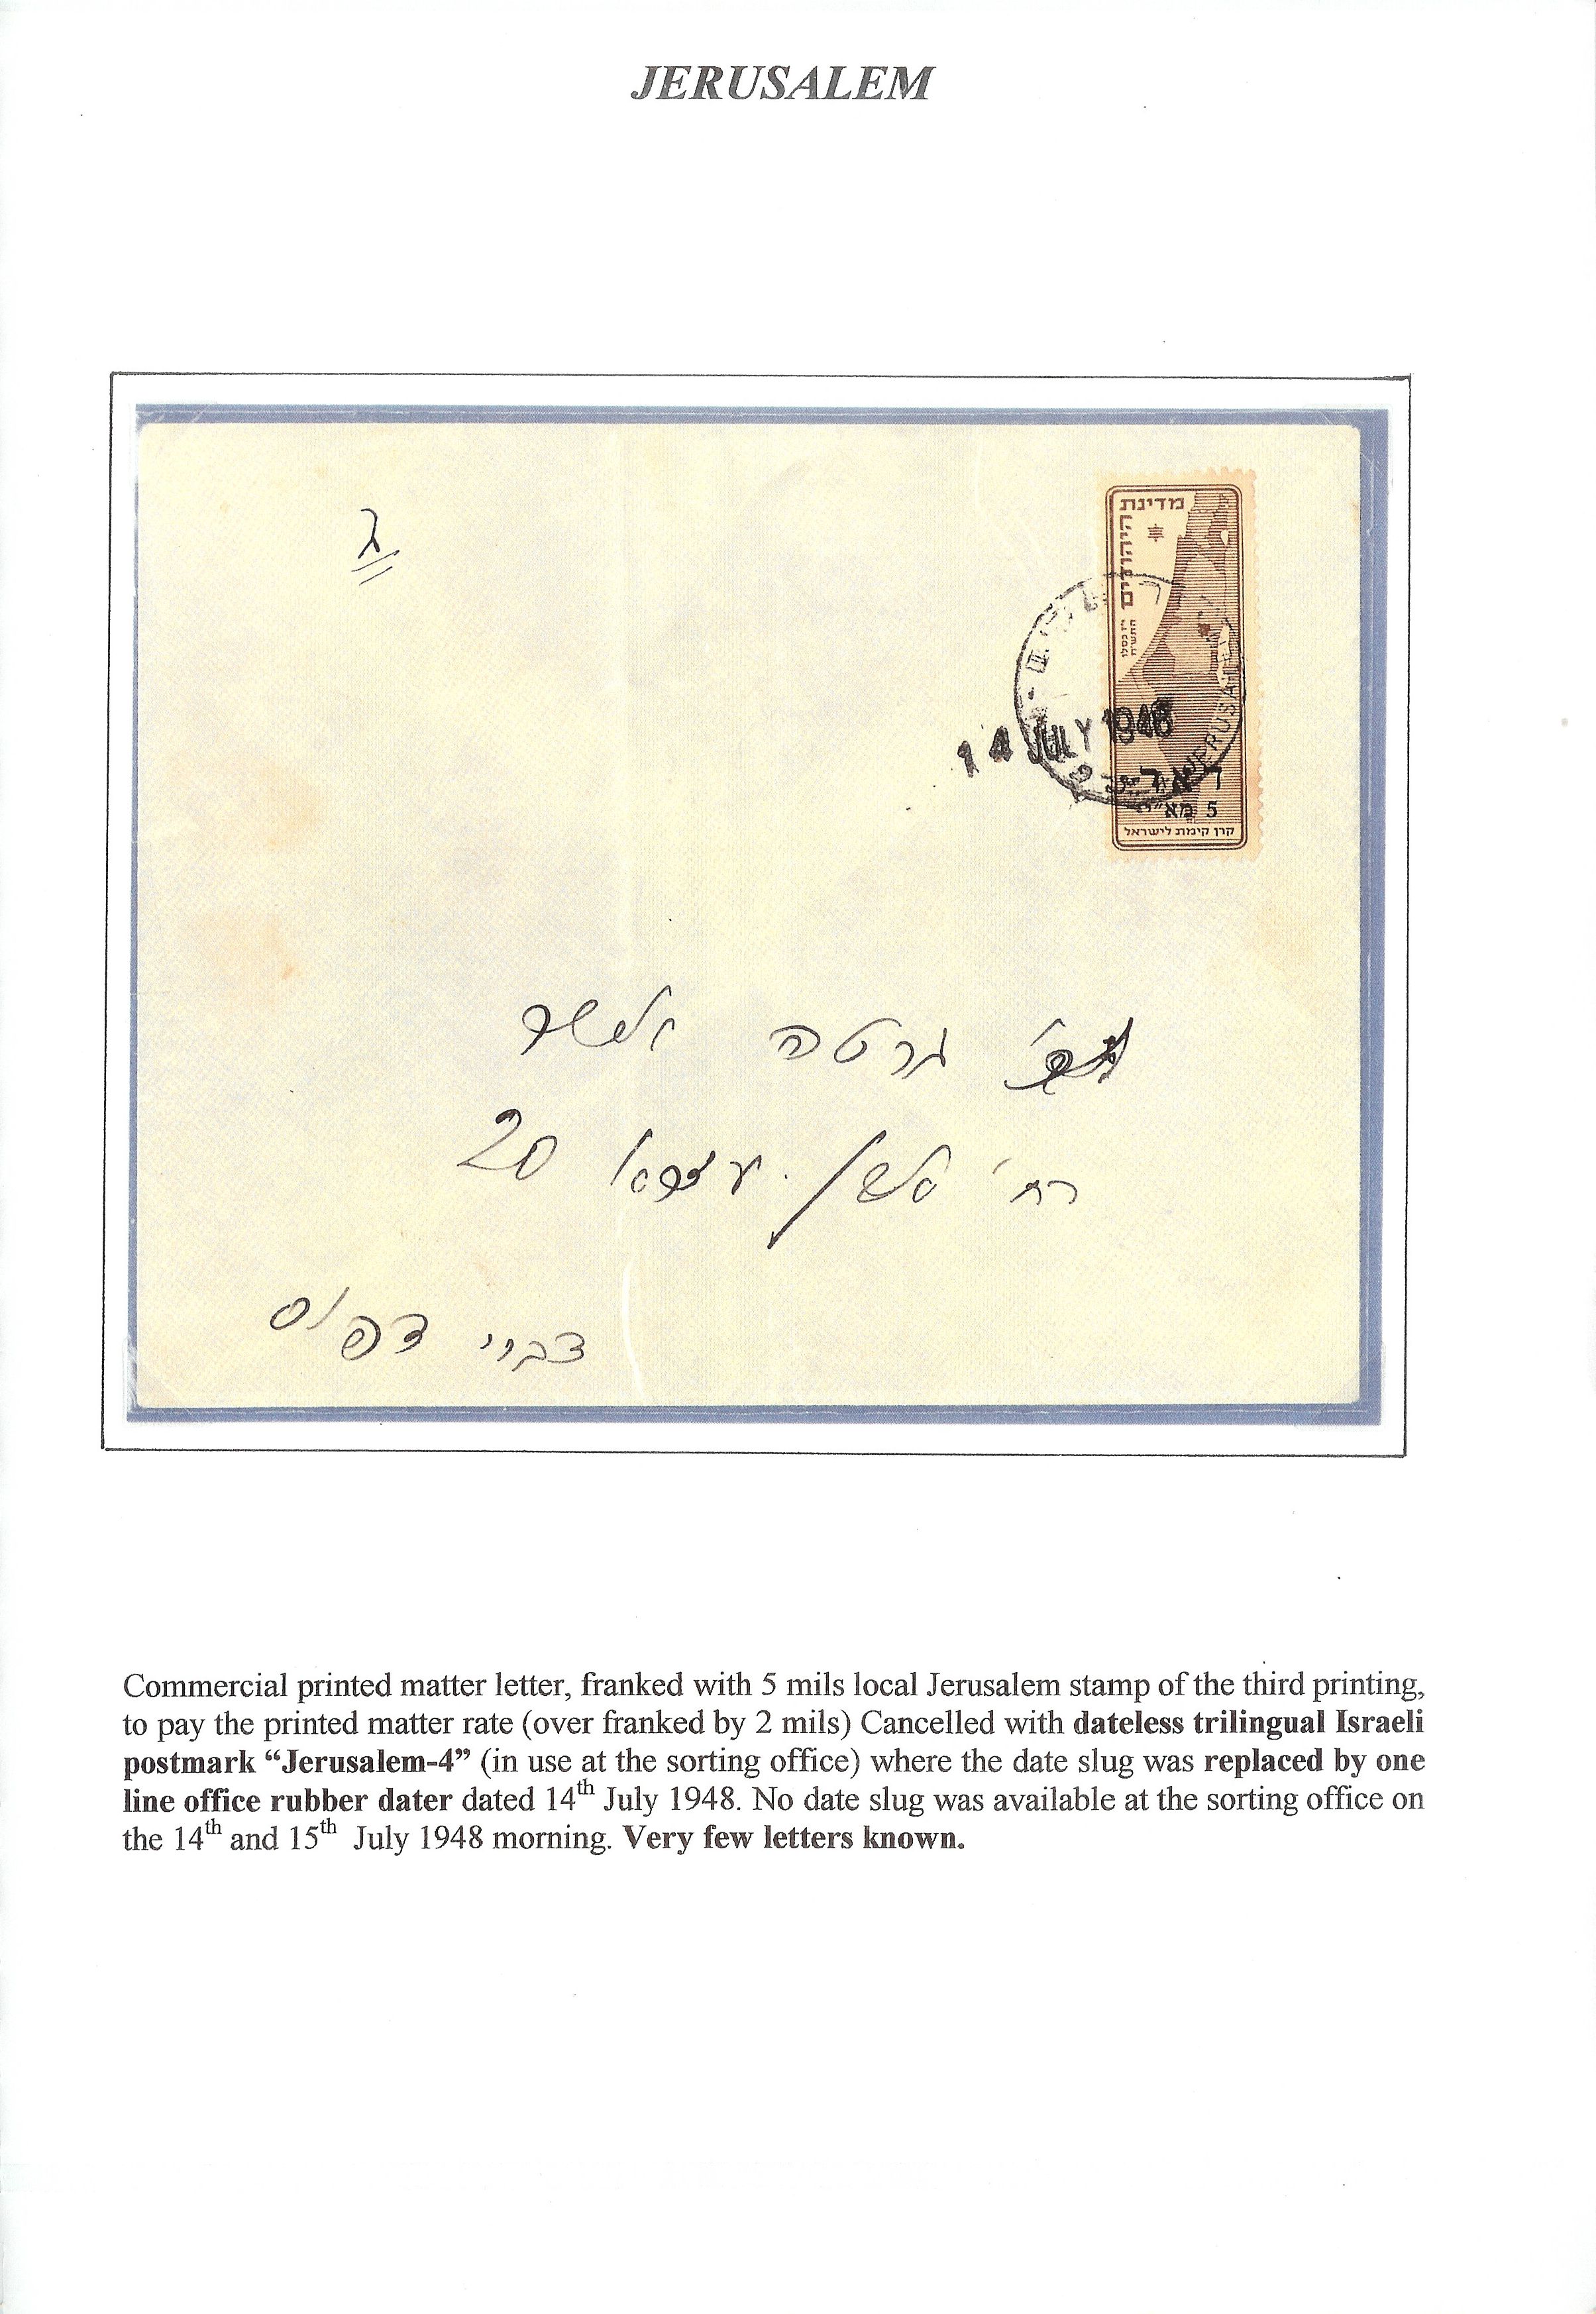 JERUSALEM
ג
מדינת
היהודים
14 JULY 1948
JERUSALEM
5 מא"י
קרן קימת לישראל
גרטה
רח׳ 20
דברי דפוס
Commercial printed matter letter, franked with 5 mils local Jerusalem stamp of the third printing,
to pay the printed matter rate (over franked by 2 mils) Cancelled with dateless trilingual Israeli
postmark “Jerusalem-4” (in use at the sorting office) where the date slug was replaced by one
line office rubber dater dated 14th July 1948. No date slug was available at the sorting office on
the 14th and 15th July 1948 morning. Very few letters known.